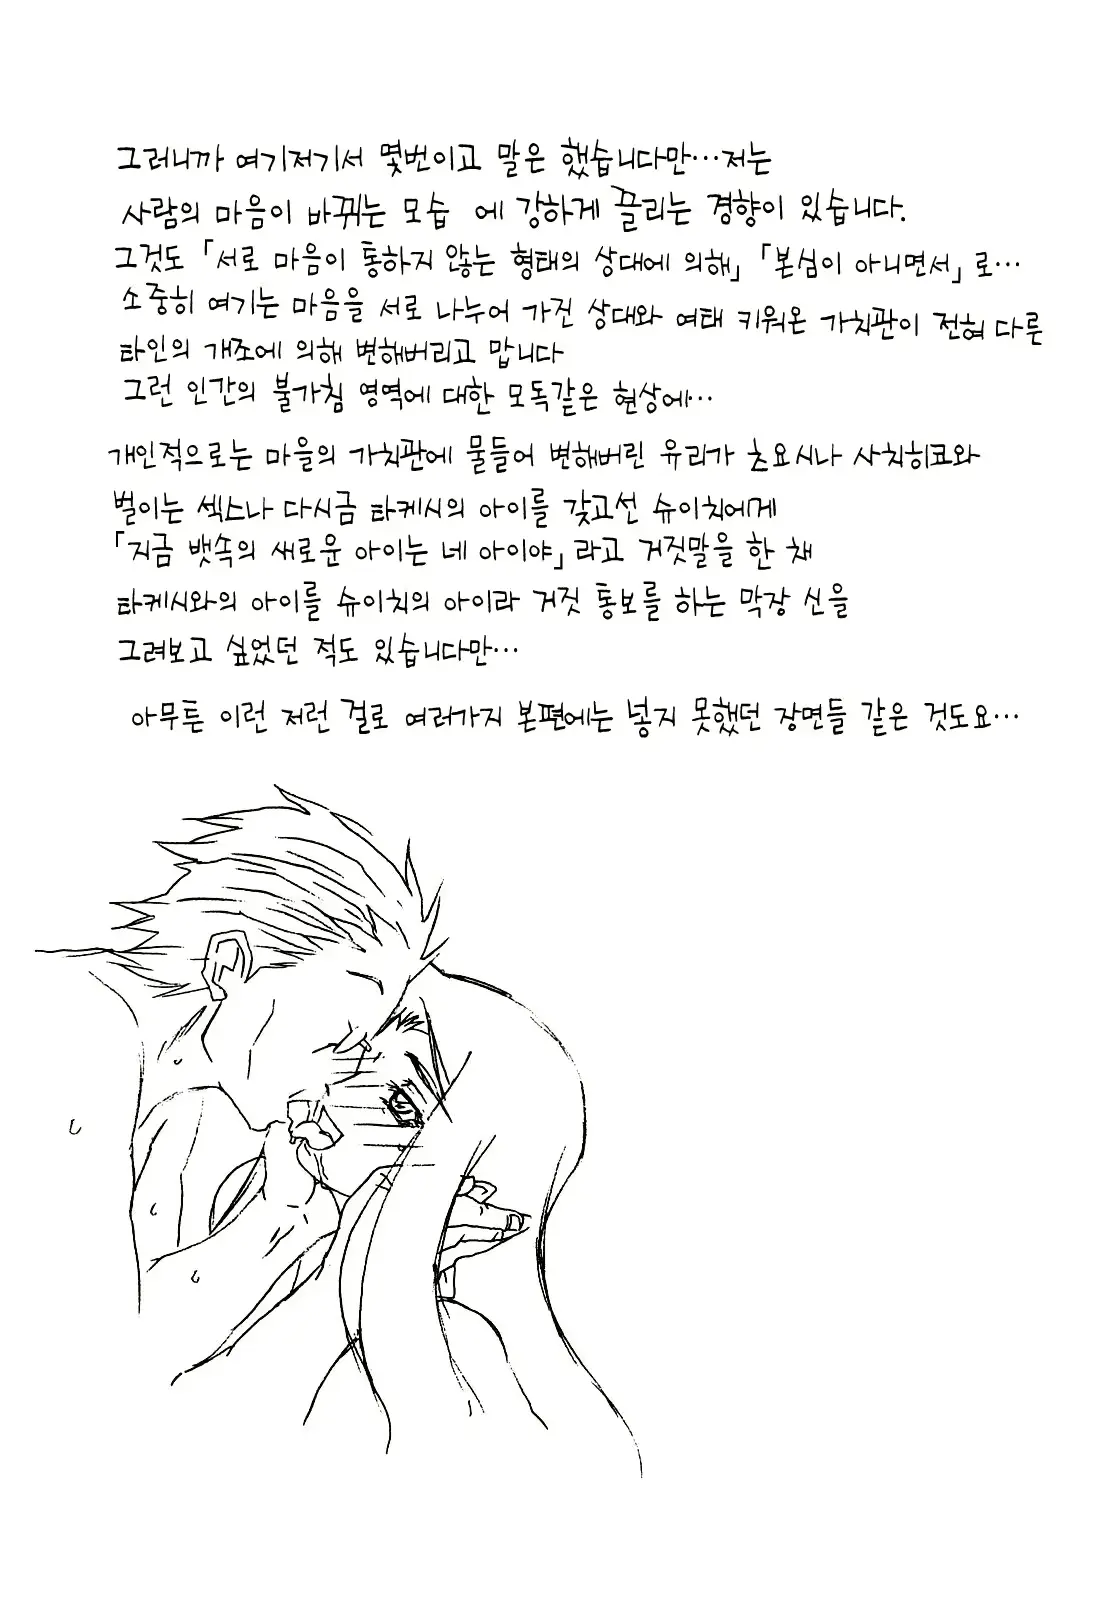 그러니까 여기저기서 몇번이고 말은 했습니다만…저는
사람의 마음이 바뀌는 모습 에 강하게 끌리는 경향이 있습니다.
그것도 「서로 마음이 통하지 않는 형태의 상대에 의해」 「본심이 아니면서」로…
소중히 여기는 마음을 서로 나누어 가진 상대와 여태 키워온 가치관이 전혀 다른
타인의 개조에 의해 변해버리고 맙니다
그런 인간의 불가침 영역에 대한 모독같은 현상에…
개인적으로는 마을의 가치관에 물들어 변해버린 유리가 초요시나 사치히코와
벌이는 섹스나 다시금 타케시의 아이를 갖고선 슈이치에게
「지금 뱃속의 새로운 아이는 네 아이야」 라고 거짓말을 한 채
타케시와의 아이를 슈이치의 아이라 거짓 통보를 하는 막장 신을
그려보고 싶었던 적도 있습니다만…
아무튼 이런 저런 걸로 여러가지 본편에는 넣지 못했던 장면들 같은 것도요…